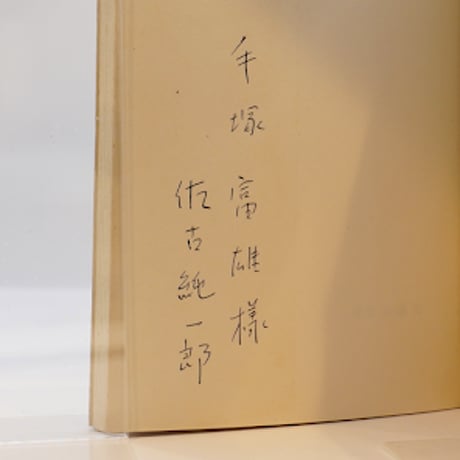 手塚富雄様
佐古純一郎